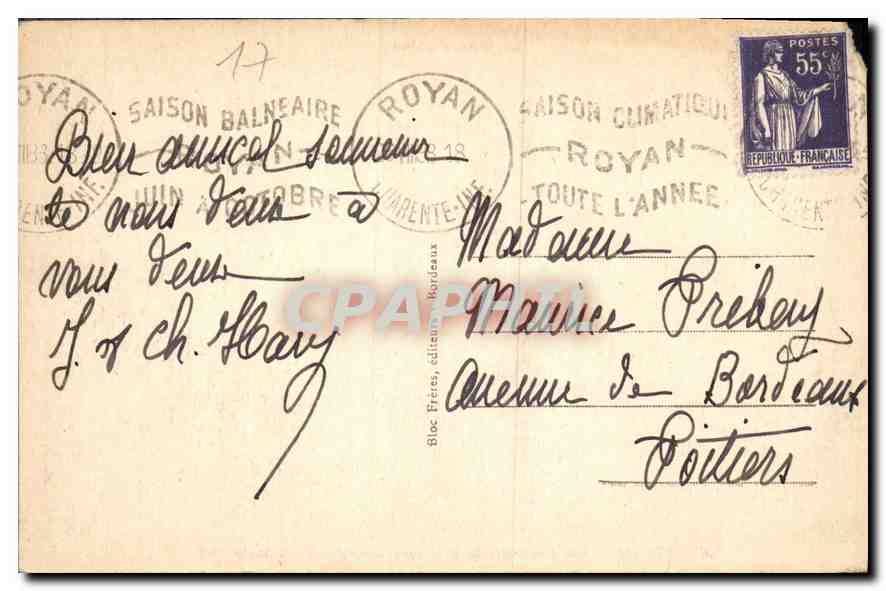 17
ROYAN
SAISON BALNEAIRE
ROYAN
JUIN À OCTOBRE
ROYAN
CHARENTE-INF.
SAISON CLIMATIQUE
ROYAN
TOUTE L'ANNEE
POSTES
55c
REPUBLIQUE-FRANÇAISE
Bien amical souvenir
de nous deux à
vous deux
J. et Ch. Hary
Bloc Frères, éditeurs, Bordeaux
Madame
Maurice
avenue de Bordeaux
Poitiers
CPAPHIL